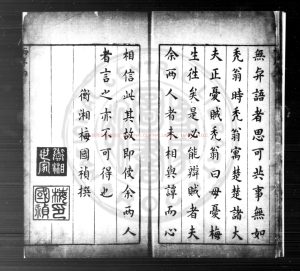 無弃語者思可共事無如
禿翁時禿翁寓楚楚諸大
夫正憂賊禿翁曰毋憂梅
生往矣是必能辦賊者夫
余兩人者未相與譚而心
相信此其故即使余兩人
者言之亦不可得也
衡湘梅國禎撰
衡湘
世家
梅印
國禎